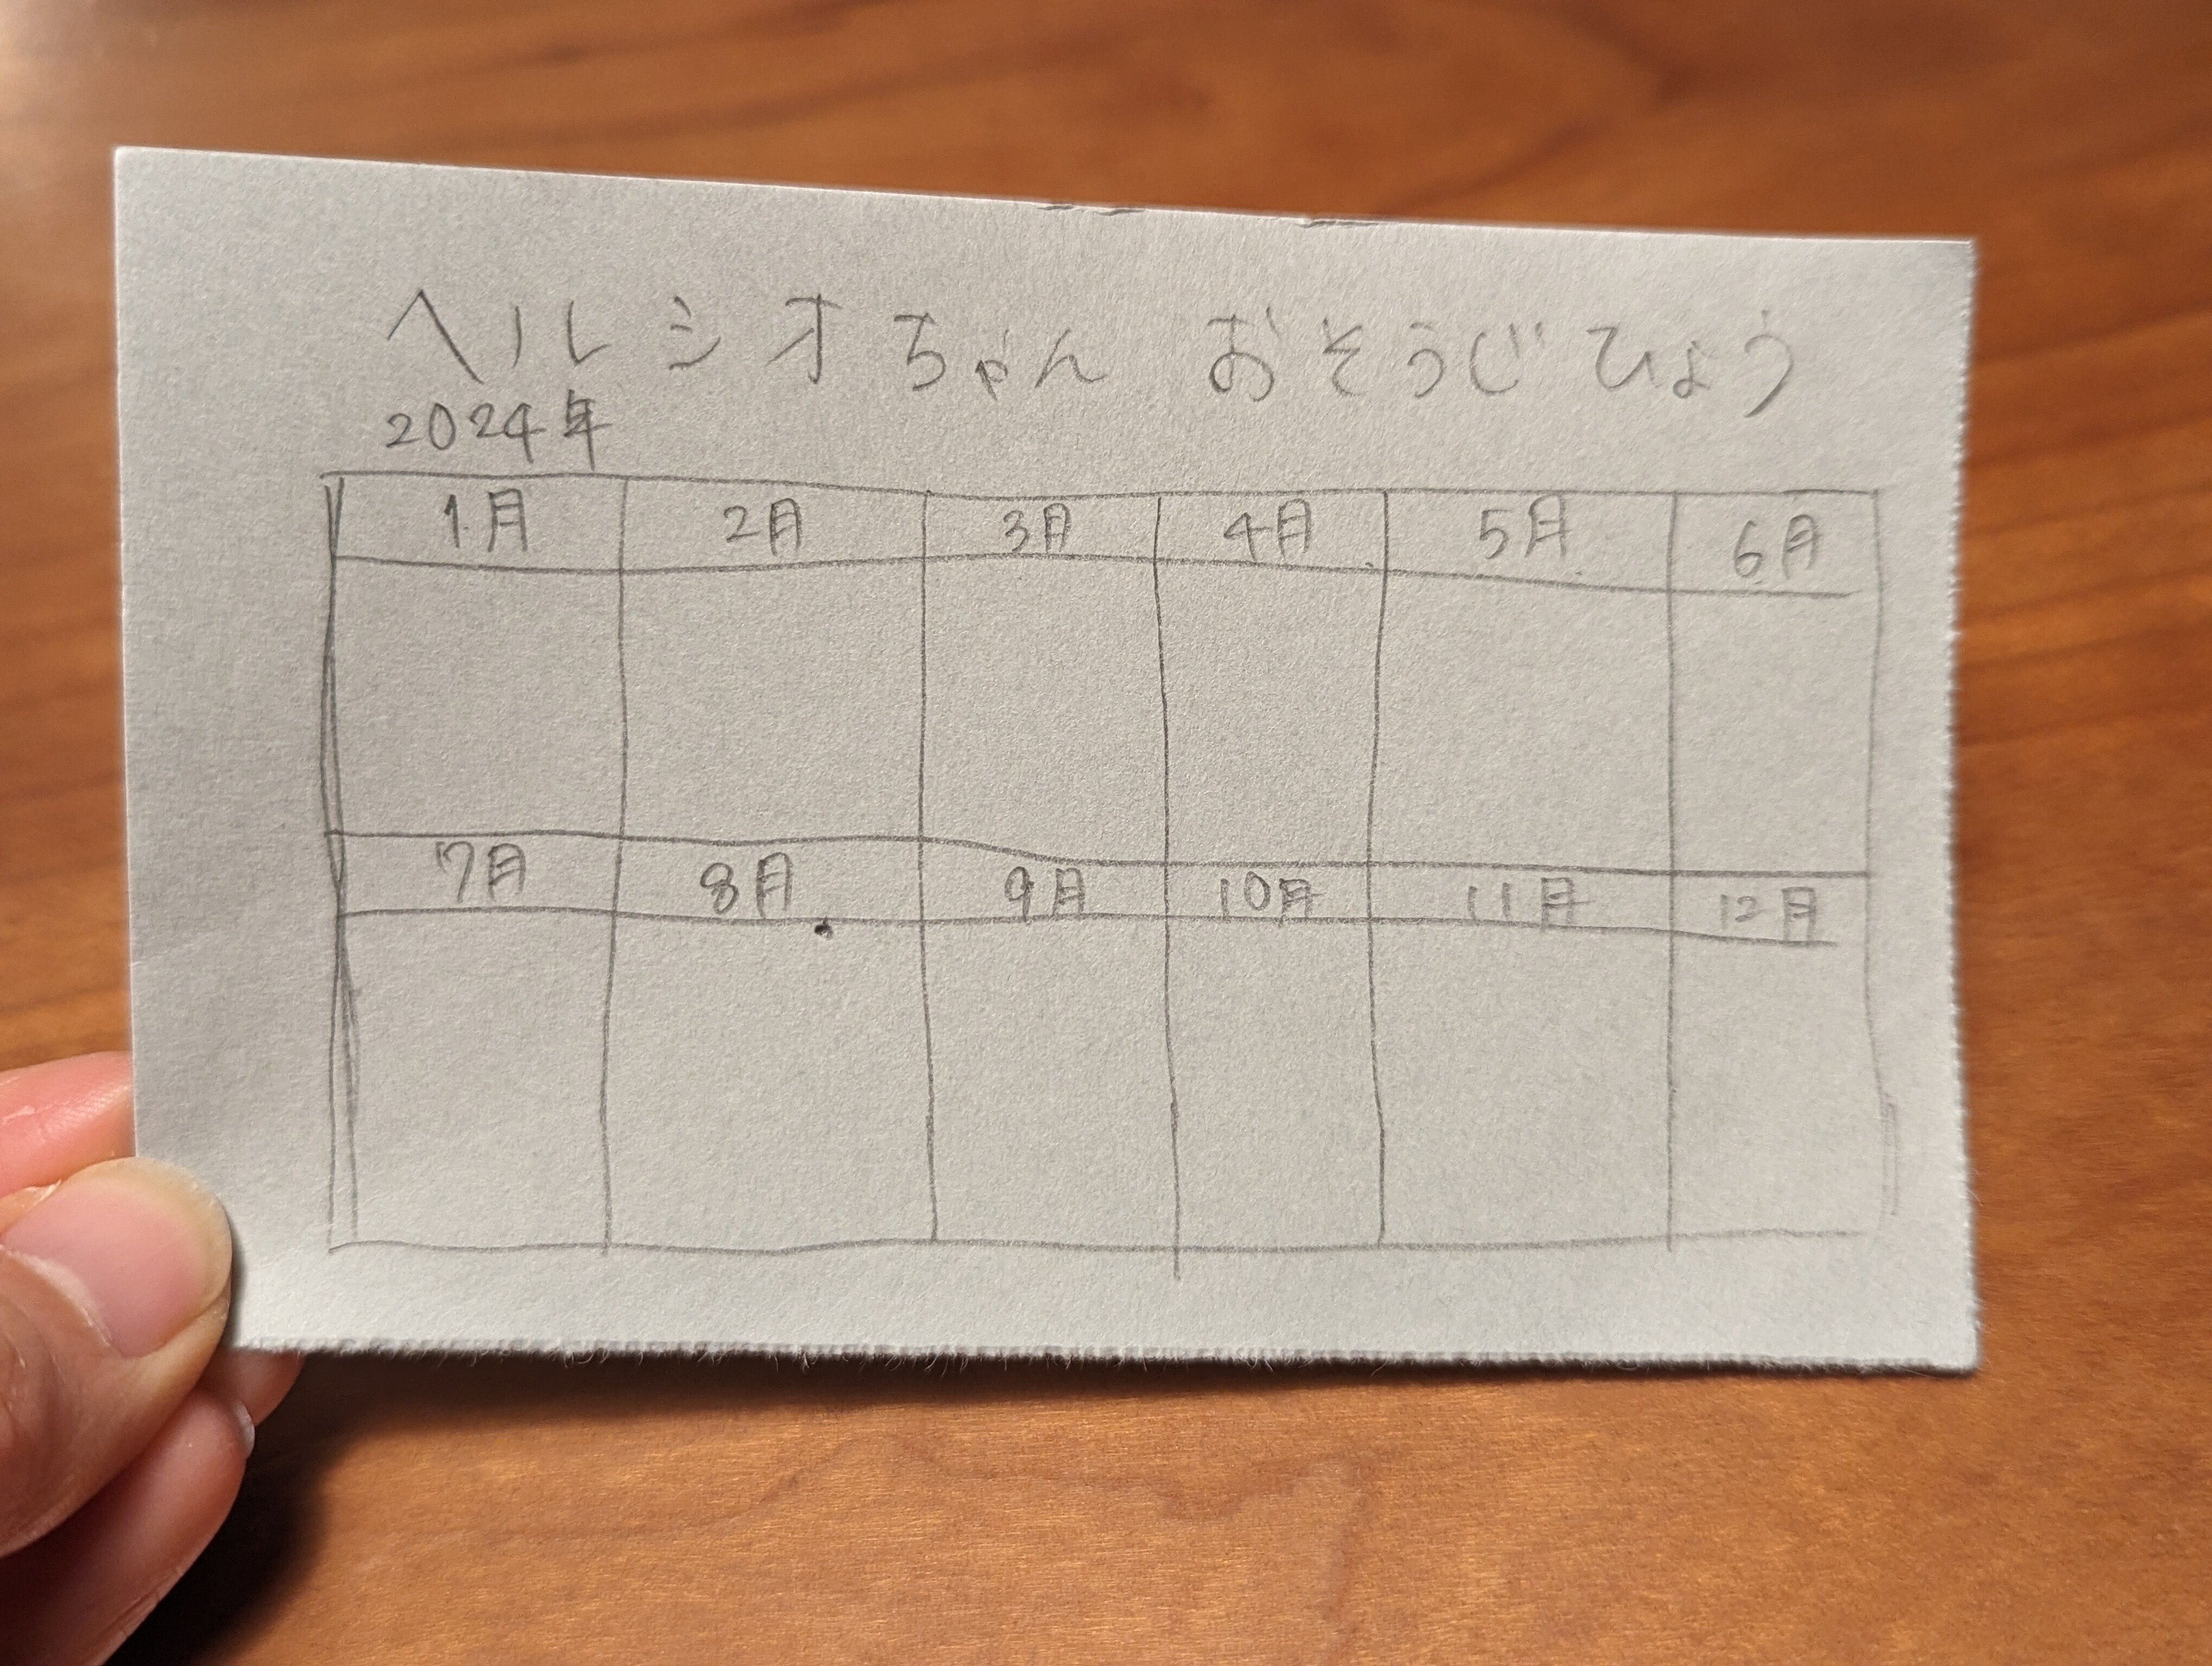 ヘルシオちゃん おそうじひょう
2024年
1月 2月 3月 4月 5月 6月
7月 8月 9月 10月 11月 12月